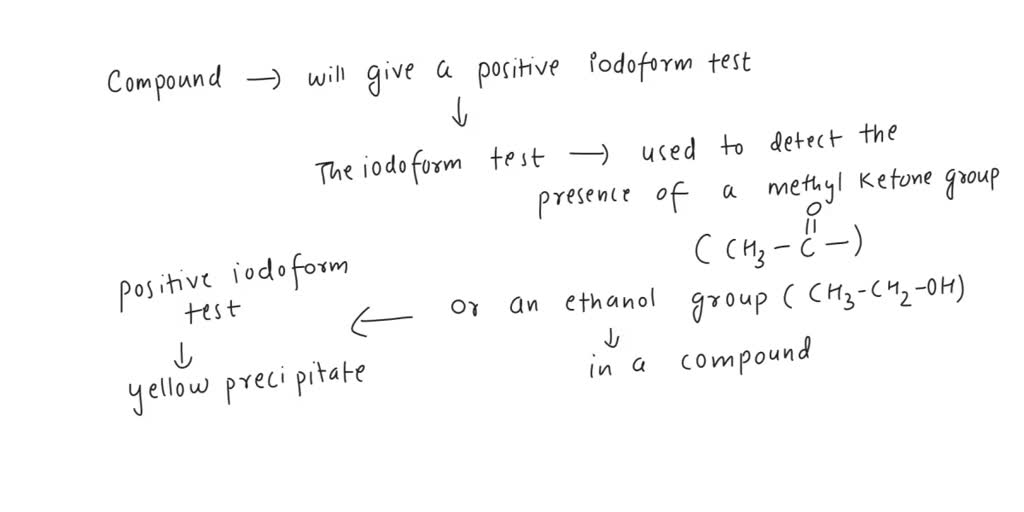 Compound → will give a positive iodoform test
↓
The iodoform test → used to detect the
presence of a methyl ketone group
O
||
(CH₃-C-)
or an ethanol group (CH₃-CH₂-OH)
↓
in a compound
←
positive iodoform
test
↓
yellow precipitate